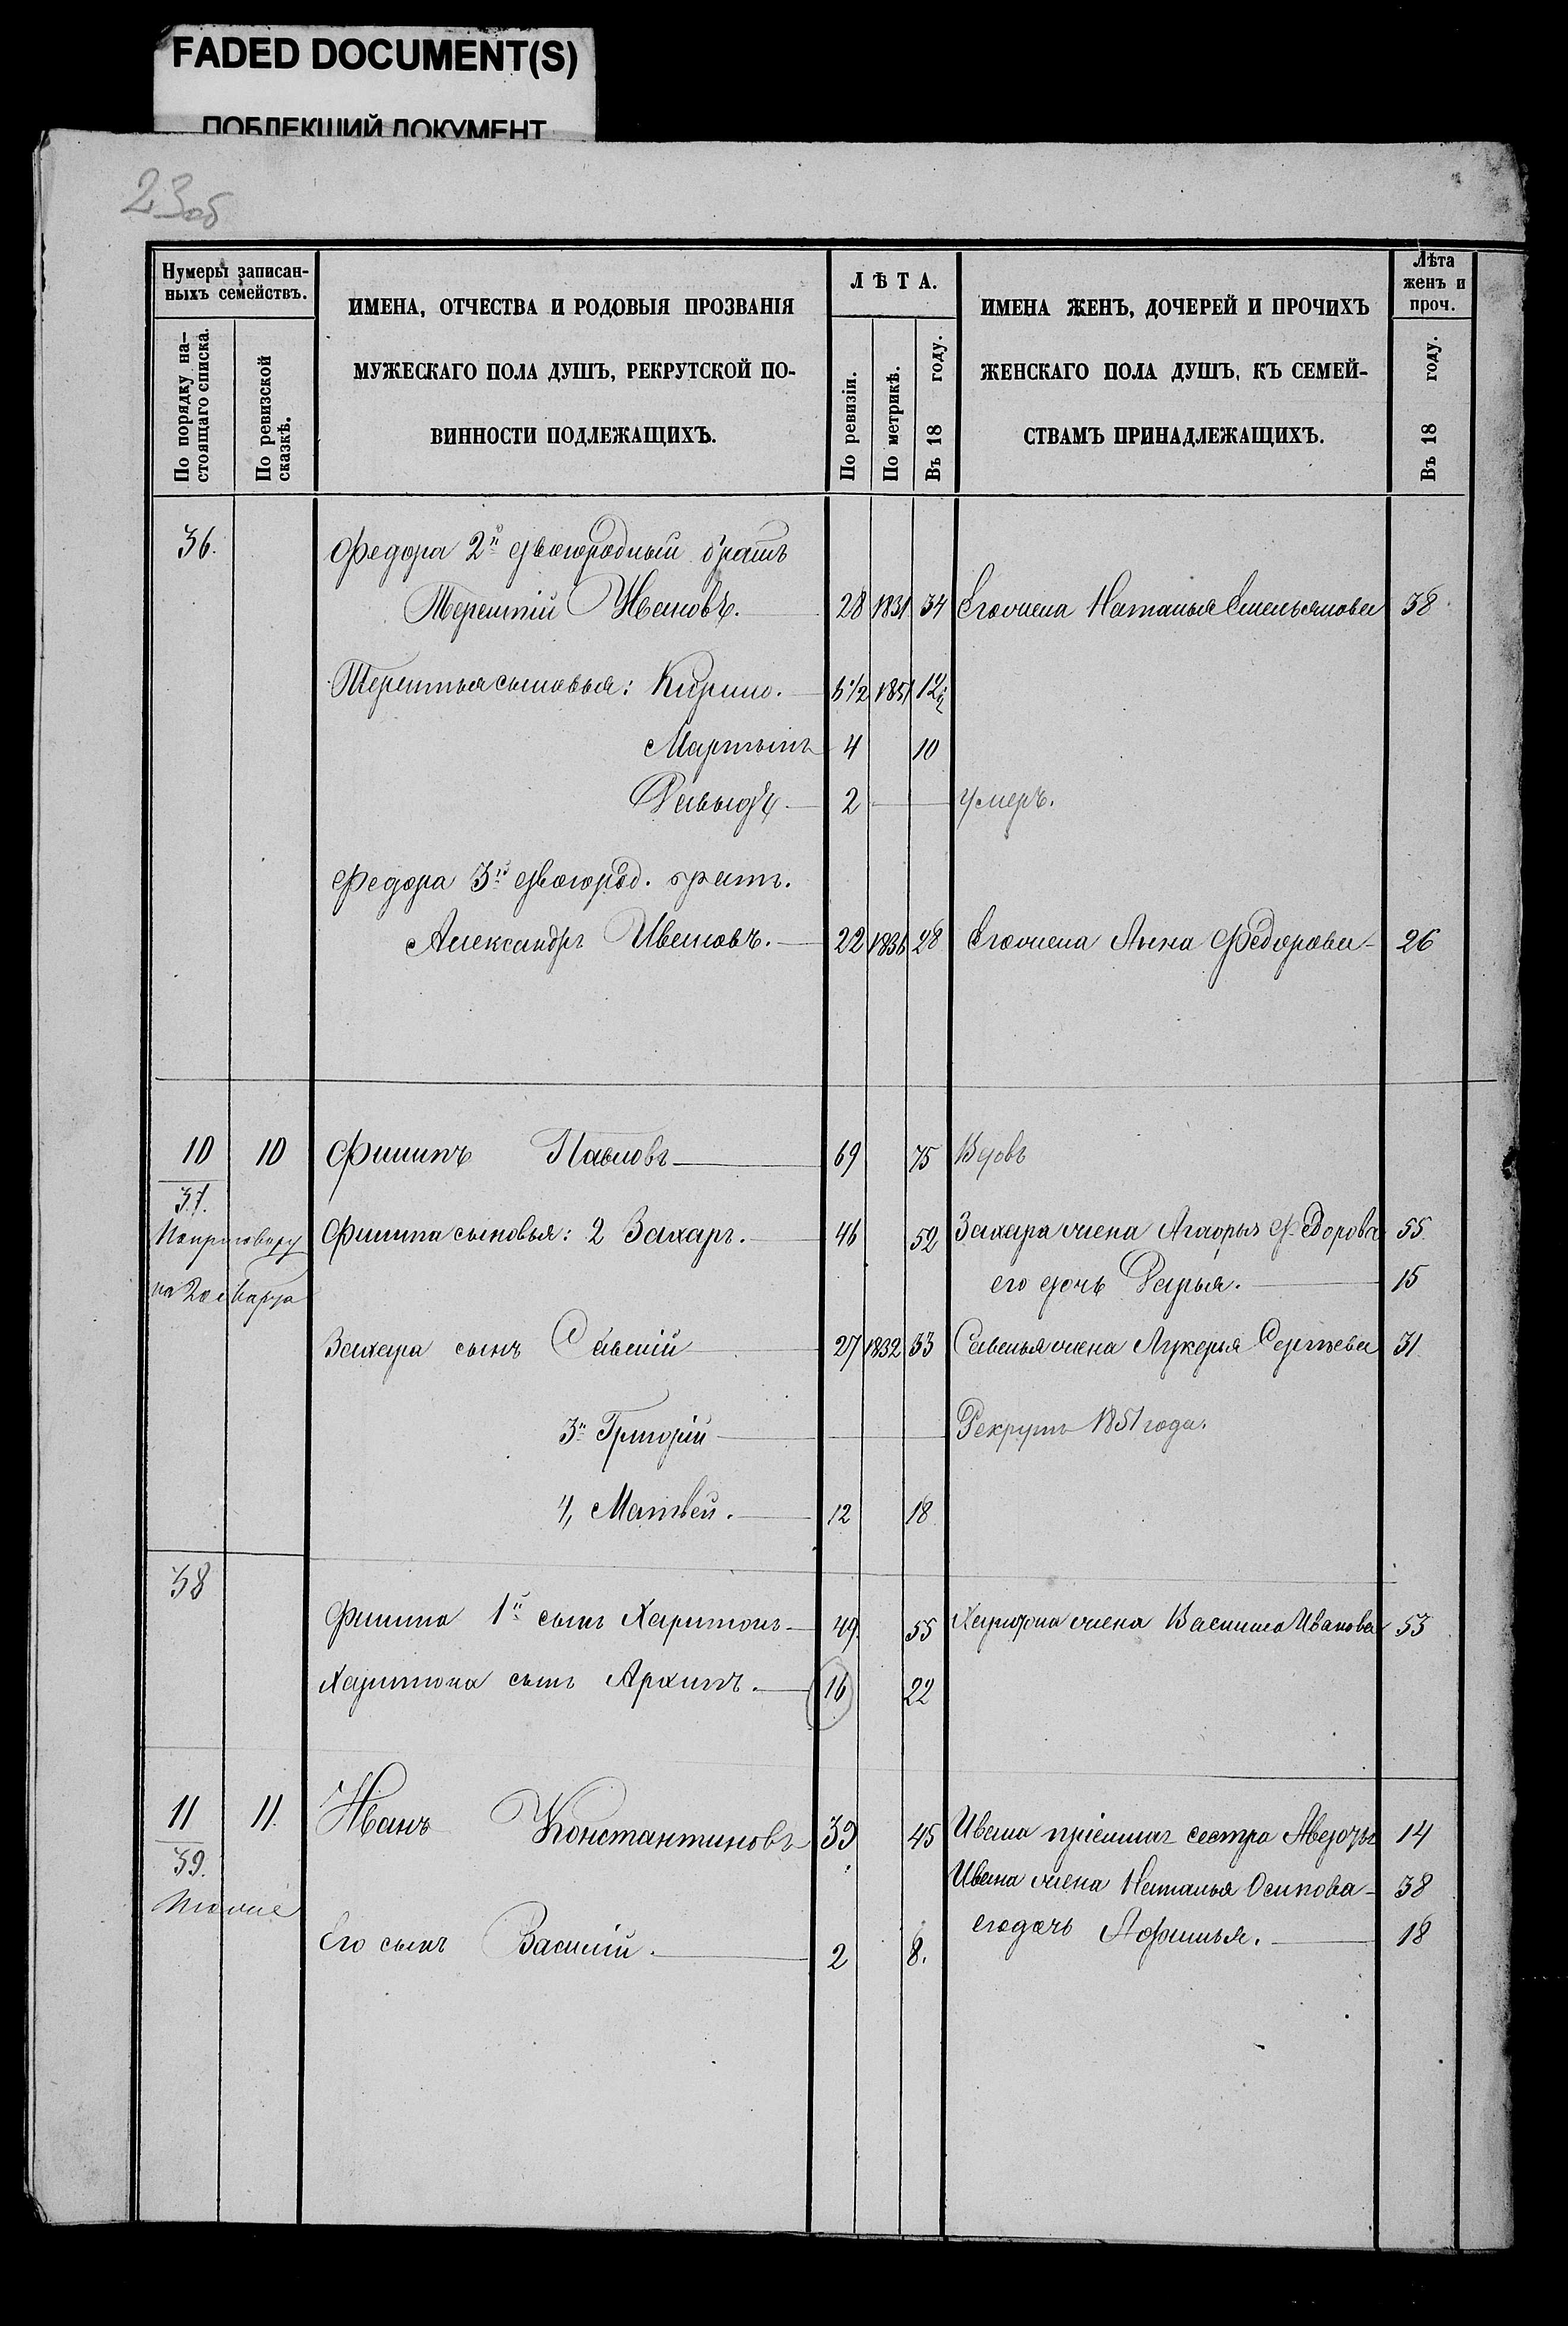 FADED DOCUMENT(S)
ПОБЛЕКШИЙ ДОКУМЕНТ
23об
Нумеры записан-
ныхъ семействъ.
По порядку на-
стоящаго списка.
По ревизской
сказкѣ.
ИМЕНА, ОТЧЕСТВА И РОДОВЫЯ ПРОЗВАНІЯ
МУЖЕСКАГО ПОЛА ДУШЪ, РЕКРУТСКОЙ ПО-
ВИННОСТИ ПОДЛЕЖАЩИХЪ.
ЛѢТА.
По ревизіи.
По метрикѣ.
Въ 18 году.
ИМЕНА ЖЕНЪ, ДОЧЕРЕЙ И ПРОЧИХЪ
ЖЕНСКАГО ПОЛА ДУШЪ, КЪ СЕМЕЙ-
СТВАМЪ ПРИНАДЛЕЖАЩИХЪ.
Лѣта
женъ и
проч.
Въ 18 году.
36. Федора 2й двоюродный братъ
Терентій Ивановъ. 28 1831 34 Его жена Наталья Емельянова 38
Терентья сыновья: Кирило. 5 1/2 1851 12
Мартынъ 4 10
Давыдъ 2 умеръ.
Федора 3й двоюрод. братъ.
Александръ Ивановъ. 22 1836 28 Его жена Анна Федорова 26
10 10 Филипъ Павловъ 69 75 Вдовъ
37.
По приговору Филипа сыновья: 2 Захаръ. 46 52 Захара жена Агафья Федорова 55
на 2 его дочь Дарья. 15
Захара сынъ Савелій 27 1832 33 Савелья жена Лукерья Сергѣева 31
3й Григорій Рекрутъ 1851 года.
4, Матвей. 12 18
38
Филипа 1й сынъ Харитонъ 49 55 Харитона жена Василиса Иванова 53
Харитона сынъ Архипъ. 16 22
11 11. Иванъ Константиновъ 39 45 Ивана пріемная сестра Авдотья 14
39. Ивана жена Наталья Осипова 38
Тоже его дочь Афимья. 18
Его сынъ Василій. 2 8.